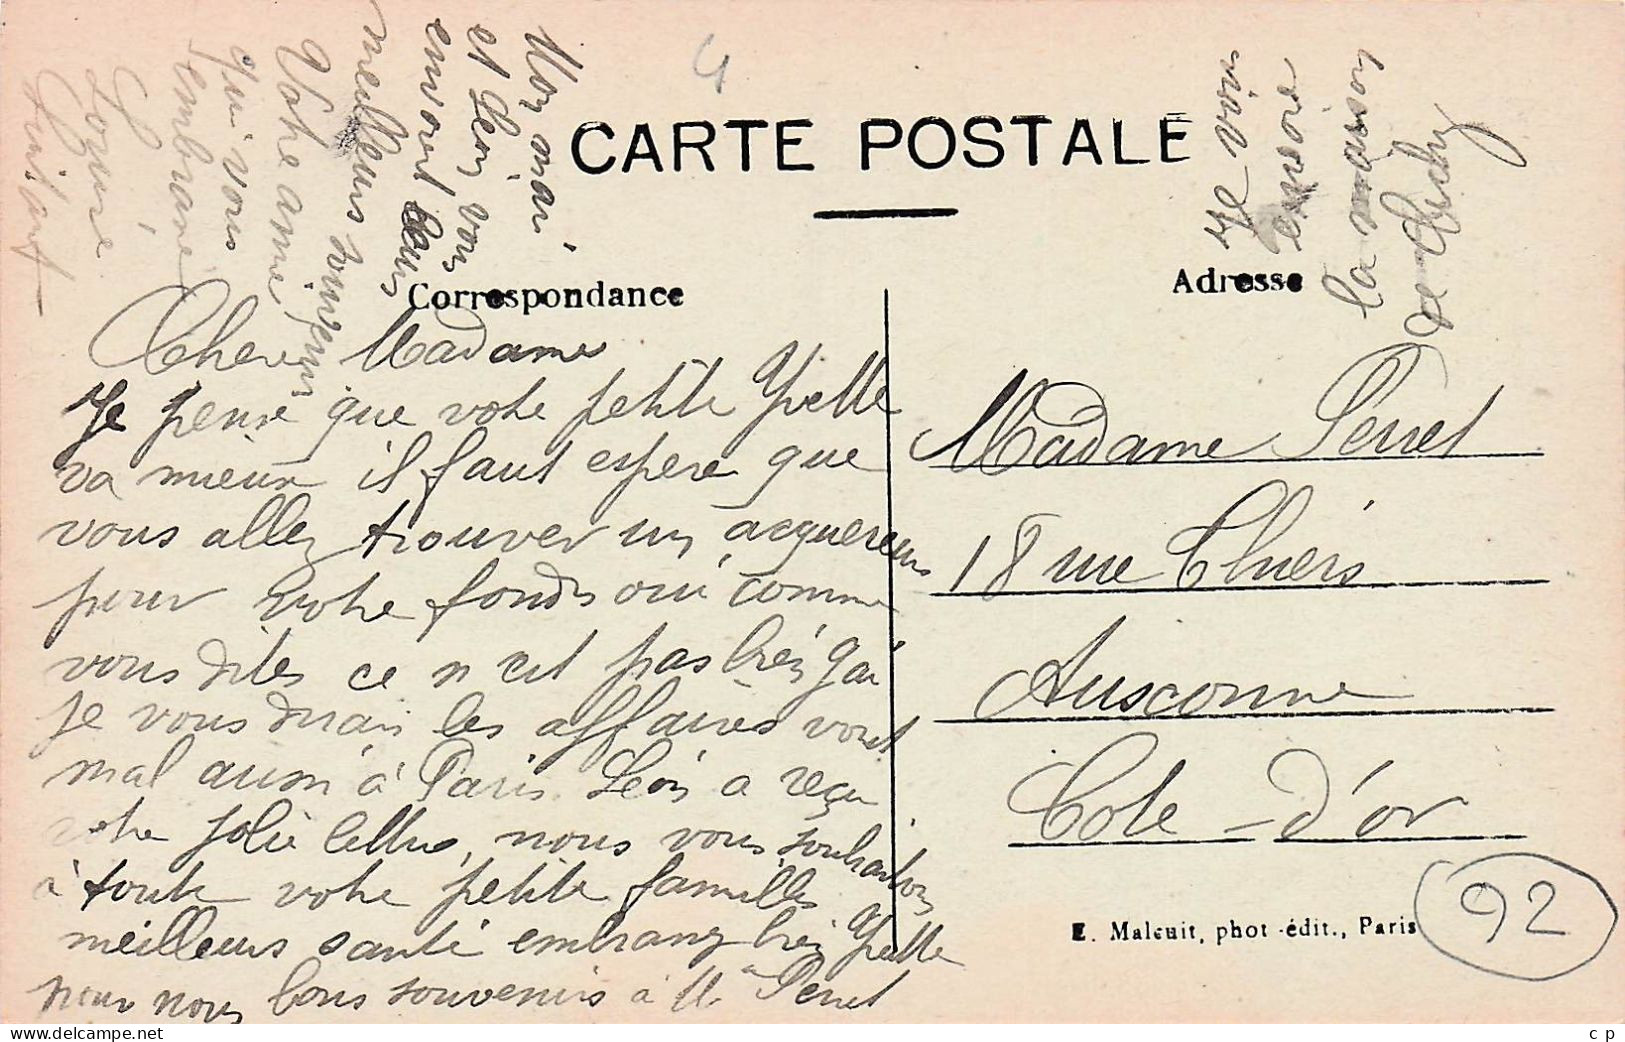 CARTE POSTALE
Correspondance
Adresse
Chere Madame
Je pense que votre petite Yvette
va mieux il faut espere que
vous allez trouver un acquereur
pour votre fonds oui comme
vous dites ce n est pas très gai
je vous dirais les affaires vont
mal aussi à Paris. Léon a reçu
votre jolie lettre, nous vous souhaitons
à toute votre petite famille
meilleurs santé embrassez bien Yvette
pour nous bons souvenirs à M Perret
Mon mari
et Léon vous
envoient leurs
meilleurs souvenirs
Votre amie
qui vous
embrasse
Je vois
encore
la maison
de Clichy
Madame Perret
18 rue Thiers
Auxonne
Cote - d'or
E. Malcuit, phot-édit., Paris
92
delcampe.net
c p